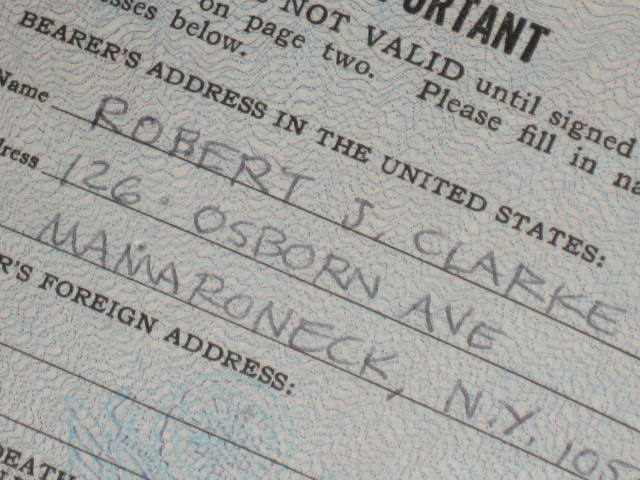 ORTANT
NOT VALID until signed
on page two. Please fill in
esses below.
BEARER'S ADDRESS IN THE UNITED STATES:
Name ROBERT J. CLARKE
dress 126 . OSBORN AVE
MAMARONECK, N.Y. 105
R'S FOREIGN ADDRESS:
DEATH